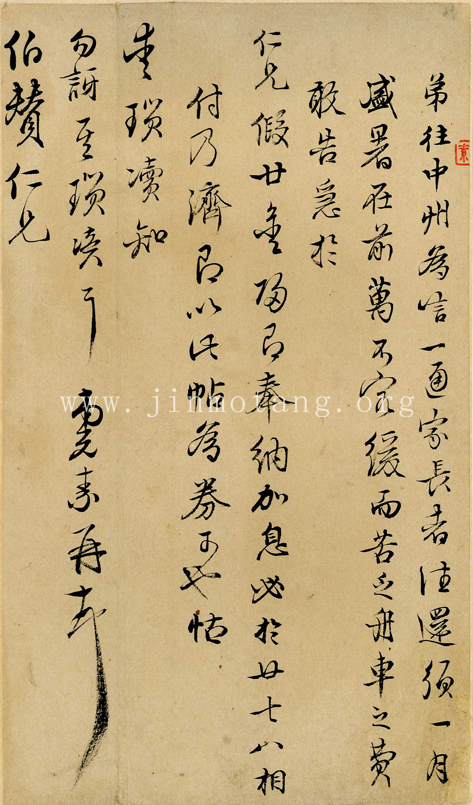 弟往中州為言一通家長者往還須一月
盛暑在前萬不容緩而苦乏舟車之費
敢告急於
仁兄假廿金歸即奉納加息必於廿七八相
付乃濟即以此帖為券可也怙
愛瑣瀆知
勿訝其瑣瀆耳 憲素再拜
伯贊仁兄
www.jinmotang.org